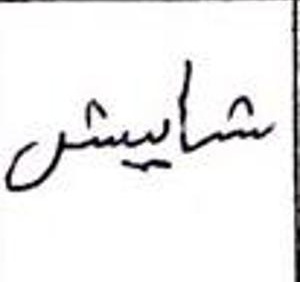 شایش